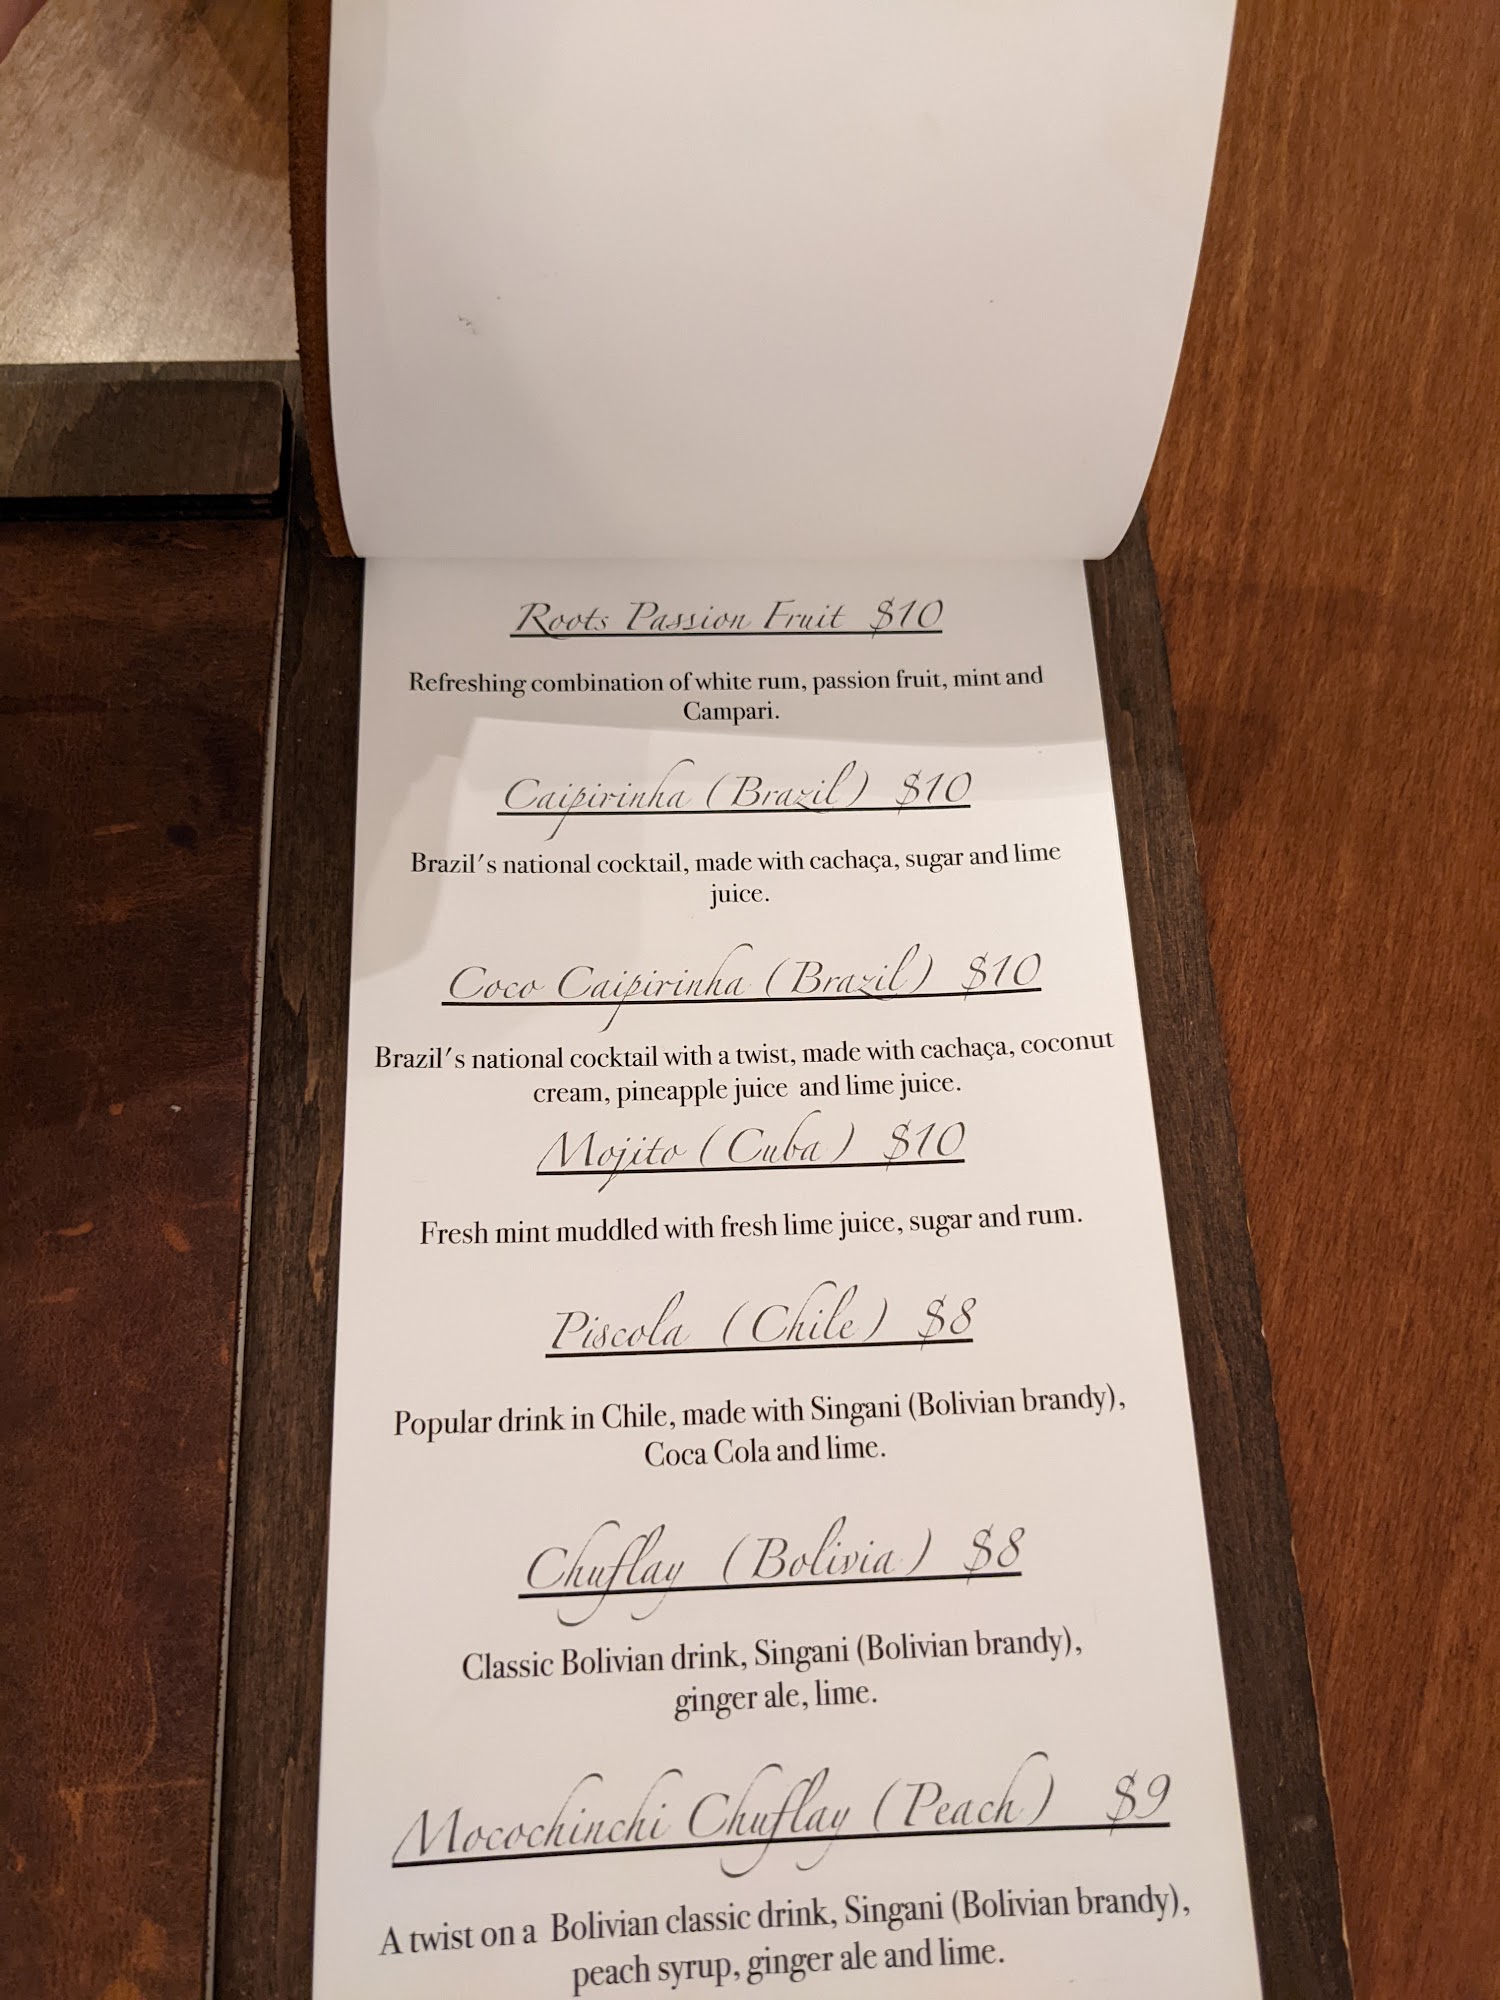 Roots Passion Fruit $10
Refreshing combination of white rum, passion fruit, mint and
Campari.
Caipirinha (Brazil) $10
Brazil's national cocktail, made with cachaça, sugar and lime
juice.
Coco Caipirinha (Brazil) $10
Brazil's national cocktail with a twist, made with cachaça, coconut
cream, pineapple juice and lime juice.
Mojito (Cuba) $10
Fresh mint muddled with fresh lime juice, sugar and rum.
Piscola (Chile) $8
Popular drink in Chile, made with Singani (Bolivian brandy),
Coca Cola and lime.
Chuflay (Bolivia) $8
Classic Bolivian drink, Singani (Bolivian brandy),
ginger ale, lime.
Mocochinchi Chuflay (Peach) $9
A twist on a Bolivian classic drink, Singani (Bolivian brandy),
peach syrup, ginger ale and lime.